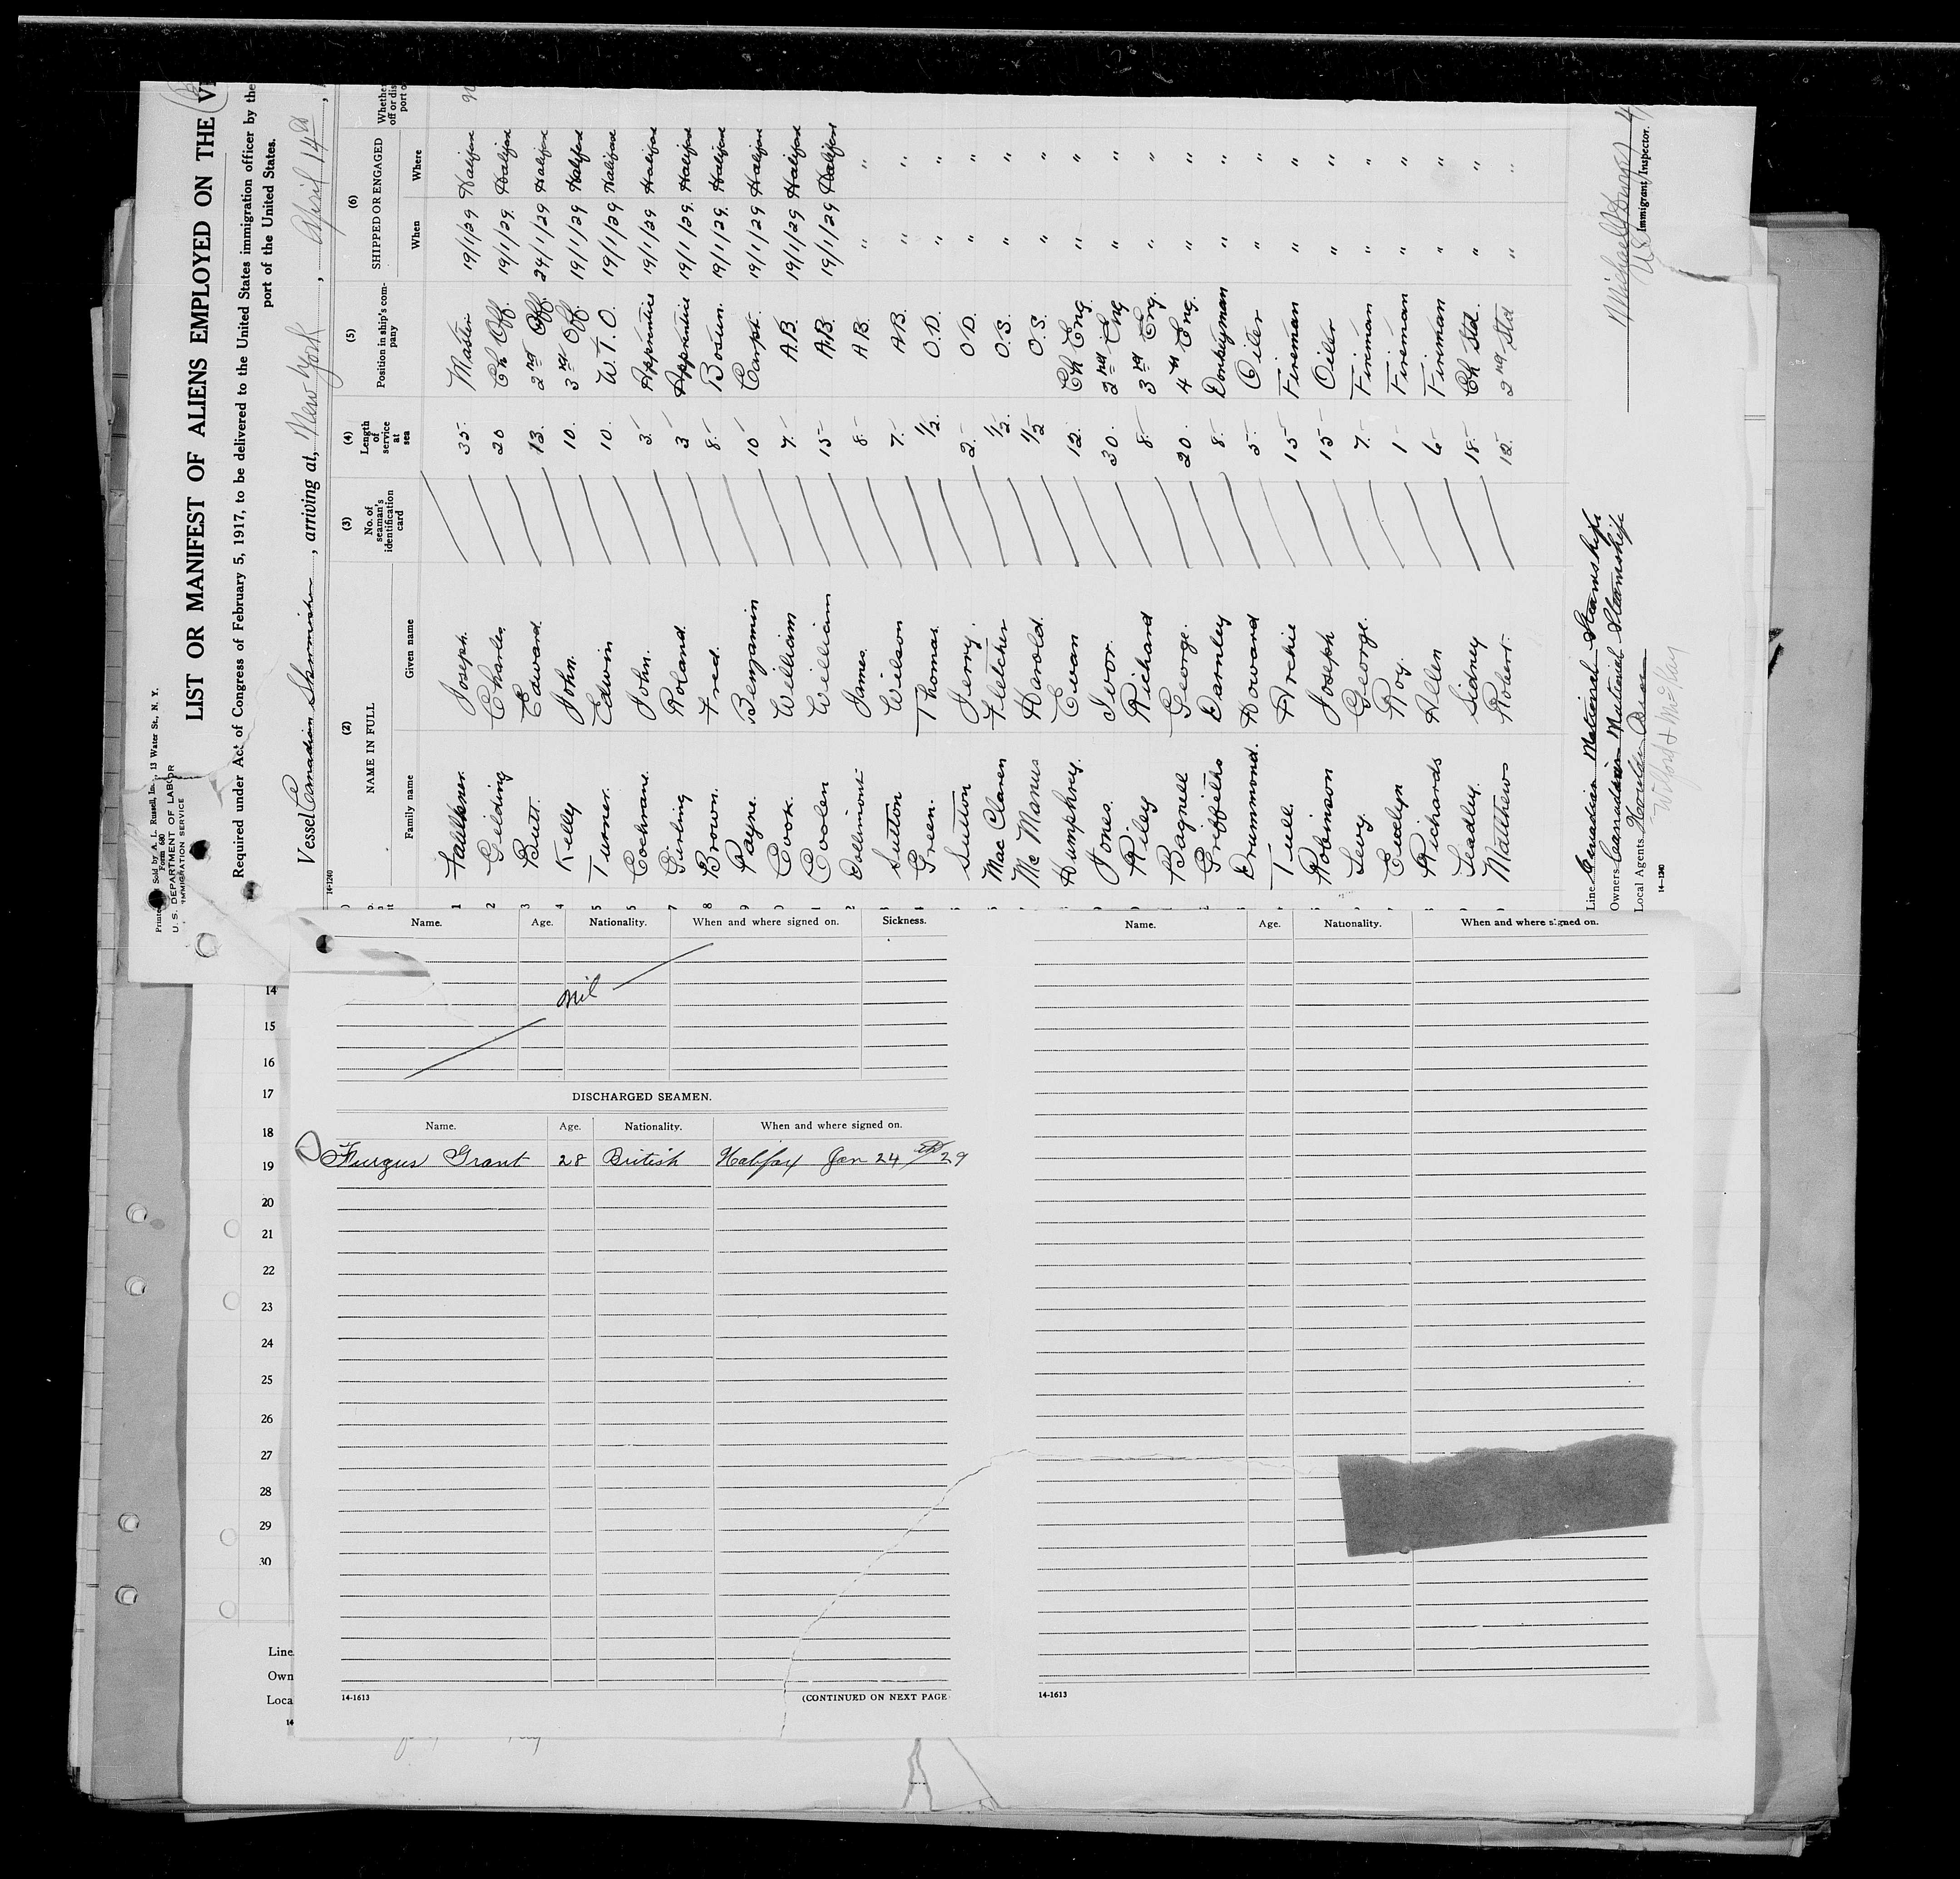 Printed and Sold by A. L. Russell, Inc., 13 Water St., N. Y.
Form 680
U. S. DEPARTMENT OF LABOR
IMMIGRATION SERVICE
LIST OR MANIFEST OF ALIENS EMPLOYED ON THE
Required under Act of Congress of February 5, 1917, to be delivered to the United States immigration officer by the
port of the United States.
Vessel Canadian Skirmisher, arriving at, New York, April 14th,
14-1240
(2) (3) (4) (5) (6)
NAME IN FULL No. of seaman's identification card Length of service at sea Position in ship's company SHIPPED OR ENGAGED
Family name Given name When Where
1 Faulkner Joseph. 35 Master 19/1/29 Halifax
2 Gilding Charles 20 Ch Off. 19/1/29. Halifax
3 Butt. Edward. 13. 2nd Off. 24/1/29 Halifax
4 Kelly John. 10. 3rd Off. 19/1/29 Halifax
5 Turner. Edwin 10. W.T.O. 19/1/29 Halifax
Cochrane. John. 3. Apprentice 19/1/29 Halifax
7 Girling Roland. 3 Apprentice 19/1/29. Halifax
8 Brown. Fred. 8. Bosun. 19/1/29. Halifax
9 Payne. Benjamin 10 Carpt. 19/1/29 Halifax
Cook. William 7. A.B. 19/1/29 Halifax
Coolen William 15 A.B. 19/1/29 Halifax
James. 8. A.B. " "
Sutton Wilson 7. A.B. " "
Green. Thomas. 1/2. O.D. " "
Sutton 2. O.D. " "
Mac Claren Fletcher 1/2. O.S. " "
Mc Manus Harold. 1/2 O.S. " "
Humphrey. Evan 12. Ch Eng. " "
Jones. Ivor. 30. 2nd Eng " "
Riley Richard 8. 3rd Eng. " "
Bagnell George. 20. 4th Eng. " "
Griffiths Darnley 8. Donkeyman " "
Drummond. Howard 5. Oiler " "
Tuell. Archie 15 Fireman " "
Robinson Joseph 15 Oiler " "
Levy. George. 7. Fireman " "
Roy. 1 Fireman " "
Richards Allen 6 Fireman " "
Leadley. Sidney 18. Ch Std. " "
Matthews Robert. 12. 2nd Std " "
Line Canadian National Steamships
Owners
Local Agents
14-1240
Immigrant Inspector.
Name. Age. Nationality. When and where signed on. Sickness.
nil
DISCHARGED SEAMEN.
Name. Age. Nationality. When and where signed on.
Furgus Grant 28 British Halifax Jan 24th 29
14-1613
(CONTINUED ON NEXT PAGE
Name. Age. Nationality. When and where signed on.
14-1613
14
15
16
17
18
19
20
21
22
23
24
25
26
27
28
29
30
Line
Own
Loca